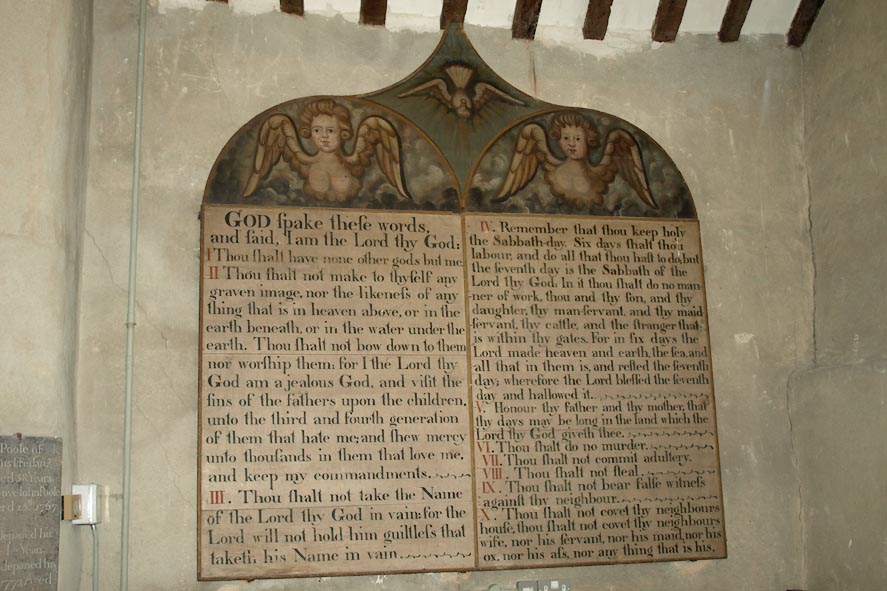 GOD ſpake theſe words,
and ſaid, I am the Lord thy God:
I Thou ſhalt have none other gods but me.
II Thou ſhalt not make to thyſelf any
graven image, nor the likeneſs of any
thing that is in heaven above, or in the
earth beneath, or in the water under the
earth. Thou ſhalt not bow down to them
nor worſhip them: for I the Lord thy
God am a jealous God, and viſit the
ſins of the fathers upon the children,
unto the third and fourth generation
of them that hate me; and ſhew mercy
unto thouſands in them that love me,
and keep my commandments.
III. Thou ſhalt not take the Name
of the Lord thy God in vain: for the
Lord will not hold him guiltleſs that
taketh his Name in vain.
IV. Remember that thou keep holy
the Sabbath-day. Six days ſhalt thou
labour, and do all that thou haſt to do; but
the ſeventh day is the Sabbath of the
Lord thy God. In it thou ſhalt do no man-
ner of work, thou and thy ſon, and thy
daughter, thy man-ſervant, and thy maid
ſervant, thy cattle, and the ſtranger that
is within thy gates. For in ſix days the
Lord made heaven and earth, the ſea, and
all that in them is, and reſted the ſeventh
day; wherefore the Lord bleſſed the ſeventh
day and hallowed it.
V. Honour thy father and thy mother, that
thy days may be long in the land which the
Lord thy God giveth thee.
VI. Thou ſhalt do no murder.
VII. Thou ſhalt not commit adultery.
VIII. Thou ſhalt not ſteal.
IX. Thou ſhalt not bear falſe witneſs
againſt thy neighbour.
X. Thou ſhalt not covet thy neighbours
houſe, thou ſhalt not covet thy neighbours
wife, nor his ſervant, nor his maid, nor his
ox, nor his aſs, nor any thing that is his.
Poole of
ed 38 Years
1767
departed his
Year.
departed his
1772 Aged